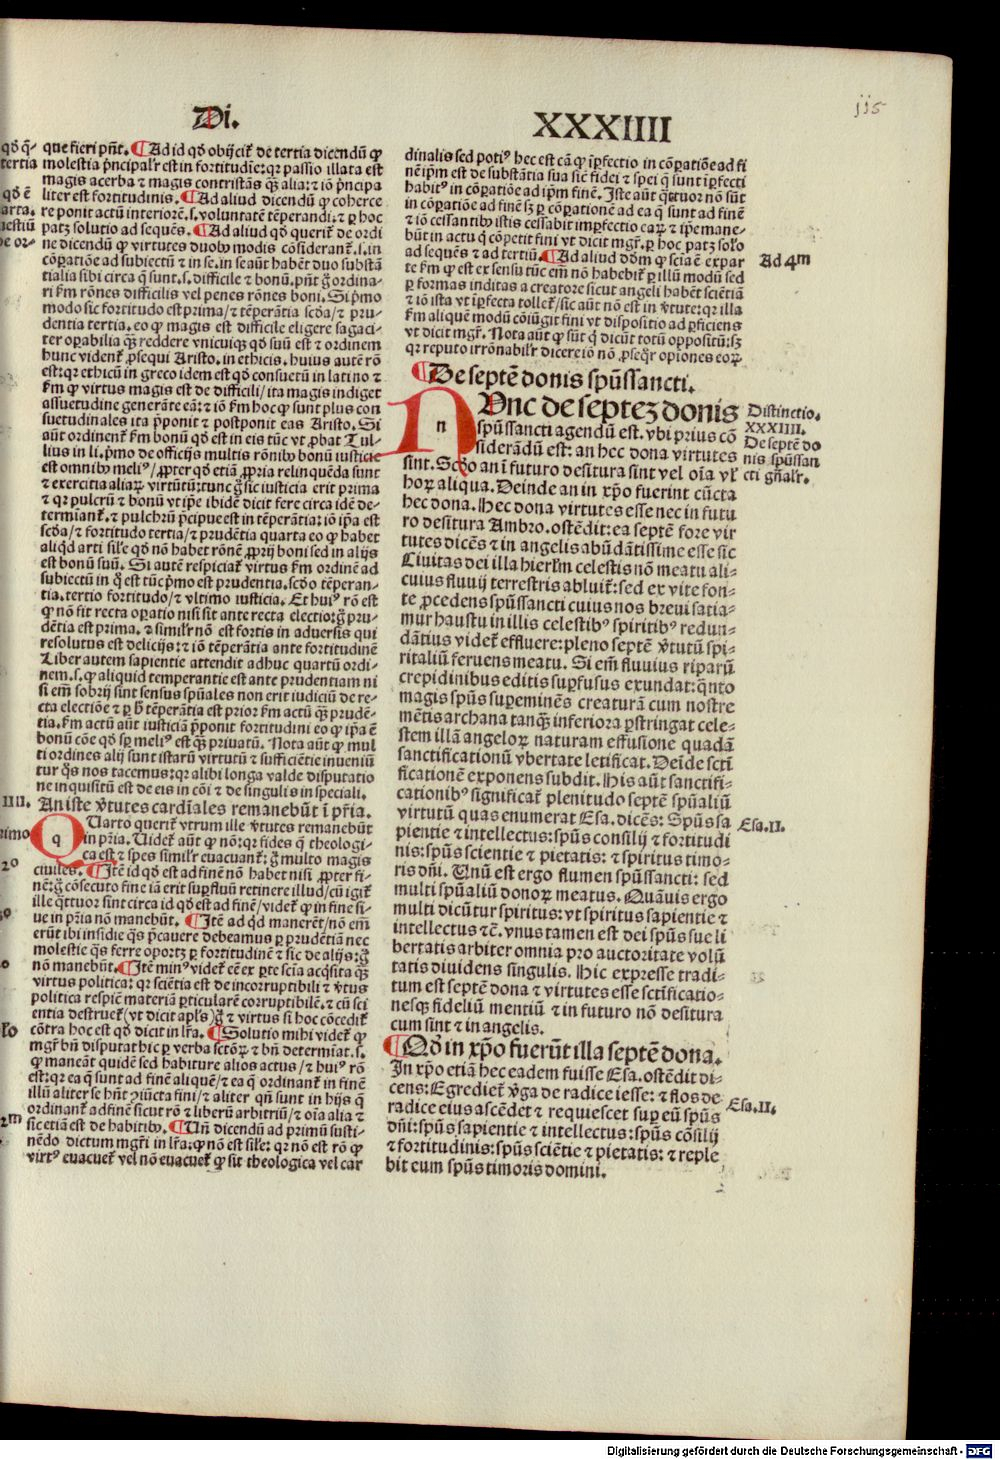 Di.
XXXIIII
115
que fieri pñt. ¶ Ad id qđ obijcit̃ de tertia dicendũ ꝙ
molestia p̃ncipalr̃ est in fortitudĩe: qꝛ passio illata est
magis acerba ⁊ magis contristãs qꝫ alia: ⁊ iõ p̃ncipa
liter est fortitudinis. ¶ Ad aliud dicendũ ꝙ cohercere
re ponit actũ interiorẽ .s. voluntatẽ tẽperandi: ⁊ ꝑ hoc
patꝫ solutio ad sequẽs. ¶ Ad aliud qđ querit̃ de ordi
ne dicendũ ꝙ virtutes duobꝫ modis cõsiderant̃ .s. in
cõꝑatiõe ad subiectũ ⁊ in se. in se aũt habẽt duo substã
tialia sibi circa q̃ sunt .s. difficile ⁊ bonũ. pñt g̃ ordina-
ri k̃m rõnes difficilis vel penes rõnes boni. Si p̃mo
modo sic fortitudo est prima/ ⁊ tẽperãtia scđa/ ⁊ pru-
dentia tertia. eo ꝙ magis est difficile eligere sagaci-
ter oꝑabilia qꝫ reddere vnicuiqꝫ qđ suũ est ⁊ ordinem
hunc vident̃ ꝓsequi Aristo. in ethicis. huius autẽ rõ
est: qꝛ ethicũ in greco idem est qđ consuetũ in latino ⁊
k̃m ꝙ virtus magis est de difficili/ ita magis indiget
assuetudine generãte eã: ⁊ iõ k̃m hoc ꝙ sunt plus con
suetudinales ita p̃ponit ⁊ postponit eas Aristo. Si
aũt ordinent̃ k̃m bonũ qđ est in eis tũc vt ꝓbat Tul-
lius in li. p̃mo de officijs multis rõnibꝫ bonũ iusticie
est omnibꝫ meliꝰ/ ꝓpter qđ etiã ꝓpria relinquẽda sunt
⁊ exercitia aliaꝝ virtũtũ: tunc g̃ sic iusticia erit prima
⁊ qꝛ pulcrũ ⁊ bonũ vt ip̃e ibidẽ dicit fere circa idẽ de-
termiant̃. ⁊ pulchrũ p̃cipue est in tẽperãtia: iõ ip̃a est
scđa/ ⁊ fortitudo tertia/ ⁊ prudẽtia quarta eo ꝙ habet
aliqd arti sil̃e qđ nõ habet rõnẽ ꝓprij boni sed in alijs
est bonũ suũ. Si autẽ respiciat̃ virtus k̃m ordinẽ ad
subiectũ in q̃ est tũc p̃mo est prudentia. scđo tẽperan-
tia. tertio fortitudo/ ⁊ vltimo iusticia. Et huiꝰ rõ est
ꝙ nõ fit recta oꝑatio nisi sit ante recta electio: g̃ pru-
dẽtia est prima. ⁊ similr̃ nõ est fortis in aduersis qui
resolutus est delicijs: ⁊ iõ tẽperãtia ante fortitudinẽ
Liber autem sapientie attendit adhuc quartũ ordi-
nem .s. ꝙ aliquid temperantie est ante prudentiam ni
si em̃ sobrij sint sensus sp̃uales non erit iudiciũ de re-
cta electiõe ⁊ ꝑ ħ tẽperãtia est prior k̃m actũ qꝫ prudẽ-
tia. k̃m actũ aũt iusticiã p̃ponit fortitudini eo ꝙ ip̃a ẽ
bonũ cõe qđ sꝑ meliꝰ est qꝫ priuatũ. Nota aũt ꝙ mul
ti ordines alij sunt istarũ virtutũ ⁊ sufficiẽtie inueniũ
tur q̃s nos tacemus: qꝛ alibi longa valde disputatio
ne inquisitũ est de eis in cõi ⁊ de singulis in speciali.
An iste v̂tutes cardĩales remanebũt ĩ pr̃ia.
QUarto querit̃ vtrum ille v̂tutes remanebũt
in pr̃ia. Videt̃ aũt ꝙ nõ: qꝛ fides q̃ theologi-
ca est ⁊ spes similr̃ euacuant̃: g̃ multo magis
ciuiles. ¶ Itẽ id qđ est ad finẽ nõ habet nisi ꝓpter fi-
nẽ: g̃ cõsecuto fine iã erit suꝑfluũ retinere illud/ cũ igit̃
ille q̃ttuor sint circa id qđ est ad finẽ/ videt̃ ꝙ in fine si-
ue in pr̃ia nõ manebũt. ¶ Itẽ ad qd manerẽt/ nõ em̃
erũt ibi insidie q̃s p̃cauere debeamus ꝑ prudẽtiã nec
molestie q̃s ferre oportꝫ ꝑ fortitudinẽ ⁊ sic de alijs: g̃
nõ manebũt. ¶ Itẽ minꝰ videt̃ eẽ ex ꝑte scia acq̃sita qꝫ
virtus politica: qꝛ sciẽtia est de incorruptibili ⁊ v̂tus
politica respiẽ materiã ꝑticularẽ corruptibilẽ. ⁊ cũ sci
entia destruet̃ (vt dicit apl̃s) g̃ ⁊ virtus si hoc cõcedit̃
cõtra hoc est qđ dicit in lr̃a. ¶ Solutio mihi videt̃ ꝙ
mgr̃ bñ disputat hic ꝑ verba sctõꝝ ⁊ bñ determĩat .s.
ꝙ maneãt quidẽ sed habiture alios actus/ ⁊ huiꝰ rõ
est: qꝛ ea q̃ sunt ad finẽ aliquẽ/ ⁊ ea q̃ ordinant̃ in finẽ
illũ aliter se hñt ↄiũcta fini/ ⁊ aliter qñ sunt in hijs q̃
ordinant̃ ad finẽ sicut rõ ⁊ liberũ arbitriũ/ ⁊ oĩa alia ⁊
sic etiã est de habitibꝫ. ¶ Uñ dicendũ ad primũ susti-
nẽdo dictum mgr̃i in lr̃a: ꝙ nõ est sil̃e: qꝛ nõ est rõ ꝙ
virtꝰ euacuet̃ vel nõ euacuet̃ ꝙ sit theologica vel car
dinalis sed potiꝰ hec est cã ꝙ ĩꝑfectio in cõꝑatiõe ad fi
nẽ ip̃m est de substãtia sua sic̃ fidei ⁊ spei q̃ sunt ĩꝑfecti
habitꝰ in cõꝑatiõe ad ip̃m finẽ. Iste aũt q̃ttuor nõ sũt
in cõꝑatiõe ad finẽ sꝫ ꝑ cõꝑationẽ ad ea q̃ sunt ad finẽ
⁊ iõ cessantibꝫ istis cessabit imꝑfectio eaꝝ ⁊ ip̃e mane-
bũt in actu q̃ cõpetit fini vt dicit mgr̃. ꝑ hoc patꝫ sol̃o
ad sequẽs ⁊ ad tertiũ. ¶ Ad aliud dõm ꝙ scia ẽ ex ꝑar
te k̃m ꝙ est ex sensu tũc em̃ nõ habebit̃ ꝑ illũ modũ sed
ꝑ formas inditas a creatore sicut angeli habẽt sciẽtiã
⁊ iõ ista vt ĩꝑfecta tollet̃/ sic aũt nõ est in v̂tute: qꝛ illa
k̃m aliquẽ modũ cõiũgit fini vt dispositio ad ꝑficiens
vt dicit mgr̃. Nota aũt ꝙ sũt q̃ dicũt totũ oppositũ: sꝫ
qꝛ reputo irrõnabilr̃ dicere iõ nõ ꝓseq̃r opiones eoꝝ.
Ad 4m
¶ De septẽ donis sp̃ussancti.
NUnc de septeꝫ donis
sp̃ussancti agendũ est. vbi prius cõ
siderãdũ est: an hec dona virtutes
sint. Scđo an ĩ futuro desitura sint vel oĩa vl̃
hoꝝ aliqua. Deinde an in xp̃o fuerint cũcta
hec dona. Hec dona virtutes esse nec in futu
ro desitura Ambro. ostẽdit: ea septẽ fore vir
tutes dicẽs ⁊ in angelis abũdãtissime esse sic
Ciuitas dei illa hierl̃m celestis nõ meatu ali-
cuius fluuij terrestris abluit̃: sed ex vite fon-
te ꝓcedens sp̃ussancti cuius nos breui satia-
mur haustu in illis celestibꝰ spiritibꝰ redun-
dãtius videt̃ effluere: pleno septẽ v̂tutũ spi-
ritaliũ feruens meatu. Si em̃ fluuius riparũ
crepidinibus editis suꝑfusus exundat: q̃nto
magis sp̃us suꝑeminẽs creaturã cum nostre
mẽtis archana tanqꝫ inferiora ꝑstringat cele-
stem illã angeloꝝ naturam effusione quadã
sanctificationũ vbertate letificat. Deĩde sctĩ
ficationẽ exponens subdit. His aũt sanctifi-
cationibꝰ significat̃ plenitudo septẽ sp̃ualiũ
virtutũ quas enumerat Esa. dicẽs: Sp̃us sa
pientie ⁊ intellectus: sp̃us consilij ⁊ fortitudi
nis: sp̃us scientie ⁊ pietatis: ⁊ spiritus timo-
ris dñi. Unũ est ergo flumen sp̃ussancti: sed
multi sp̃ualiũ donoꝝ meatus. Quãuis ergo
multi dicũtur spiritus: vt spiritus sapientie ⁊
intellectus ⁊ẽ. vnus tamen est dei sp̃us sue li
bertatis arbiter omnia pro auctoritate volũ
tatis diuidens singulis. Hic expresse tradi-
tum est septẽ dona ⁊ virtutes esse sctĩficatio-
nesqꝫ fideliũ mentiũ ⁊ in futuro nõ desitura
cum sint ⁊ in angelis.
¶ Qđ in xp̃o fuerũt illa septẽ dona.
In xp̃o etiã hec eadem fuisse Esa. ostẽdit di-
cens: Egrediet̃ v̂ga de radice iesse: ⁊ flos de
radice eius ascẽdet ⁊ requiescet suꝑ eũ sp̃us
dñi: sp̃us sapientie ⁊ intellectus: sp̃us cõsilij
⁊ fortitudinis: sp̃us sciẽtie ⁊ pietatis: ⁊ reple
bit eum sp̃us timoris domini.
Distinctio.
XXXIIII.
De septẽ do
nis sp̃ussan
cti gñalr̃.
Esa.II.
Esa.II.
Digitalisierung gefördert durch die Deutsche Forschungsgemeinschaft - DFG